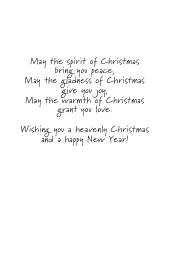 May the spirit of Christmas
bring you peace,
May the gladness of Christmas
give you joy,
May the warmth of Christmas
grant you love.
Wishing you a heavenly Christmas
and a happy New Year!